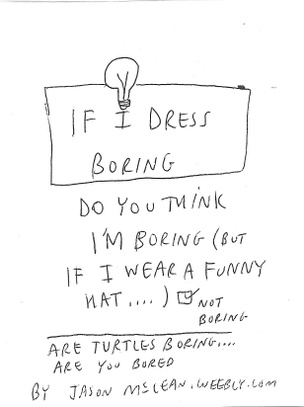 IF I DRESS
BORING
DO YOU THINK
I'M BORING (BUT
IF I WEAR A FUNNY
HAT....) NOT
BORING
ARE TURTLES BORING....
ARE YOU BORED
BY JASON MCLEAN.WEEBLY.COM